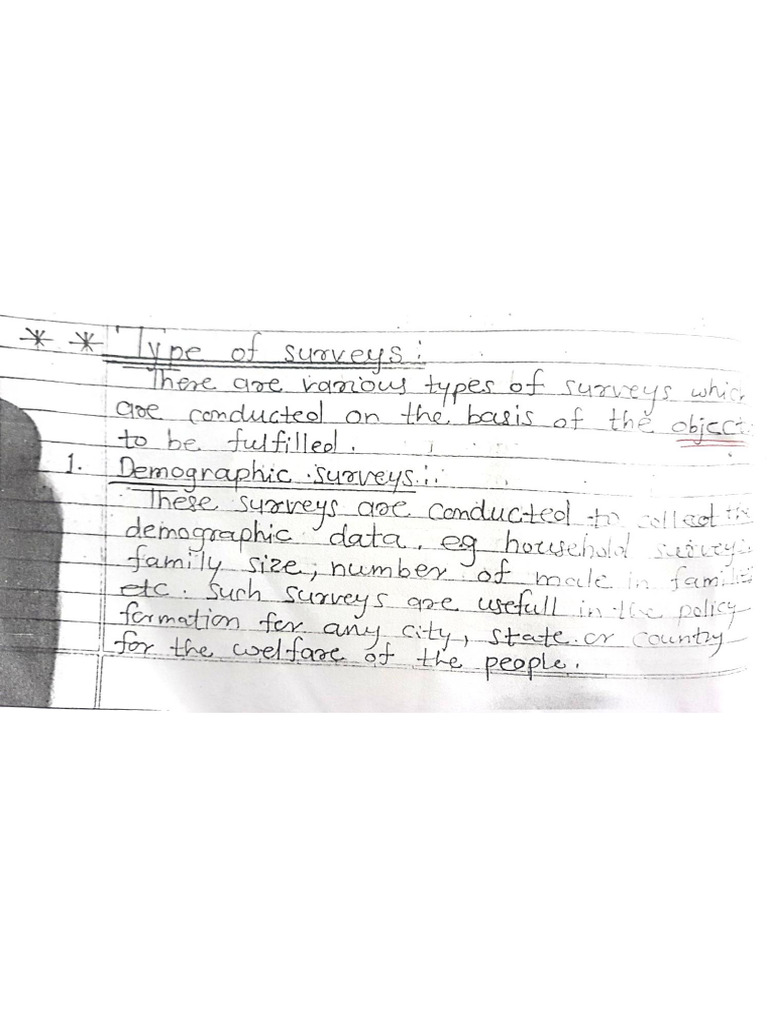 ** Type of surveys:
There are various types of surveys which
are conducted on the basis of the object
to be fulfilled.
1. Demographic surveys:
These surveys are conducted to collect the
demographic data, eg household surveys
family size, number of male in families
etc. Such surveys are usefull in the policy
formation for any city, state or country
for the welfare of the people.